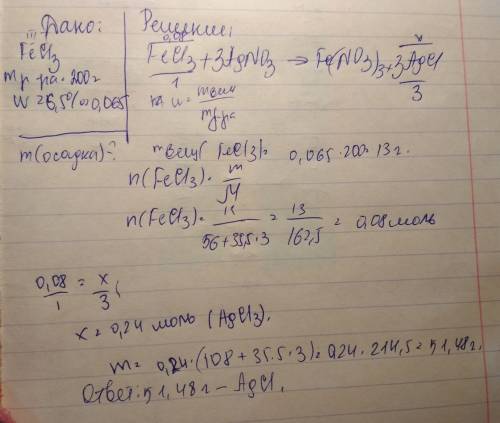 Дано:
III
FeCl3
m р-ра = 200г
W = 6,5% = 0,065
m(осадка)-?
Решение:
0,08 x
FeCl3 + 3AgNO3 → Fe(NO3)3 + 3AgCl
1 3
W = mвещ / mр-ра
mвещ(FeCl3) = 0,065·200 = 13 г.
n(FeCl3) = m / M
n(FeCl3) = 13 / 56+35,5·3 = 13 / 162,5 = 0,08 моль
0,08 / 1 = x / 3;
x = 0,24 моль (AgCl3).
m = 0,24·(108 + 35.5·3) = 0,24·214,5 = 51,48 г.
Ответ: 51,48 г - AgCl.